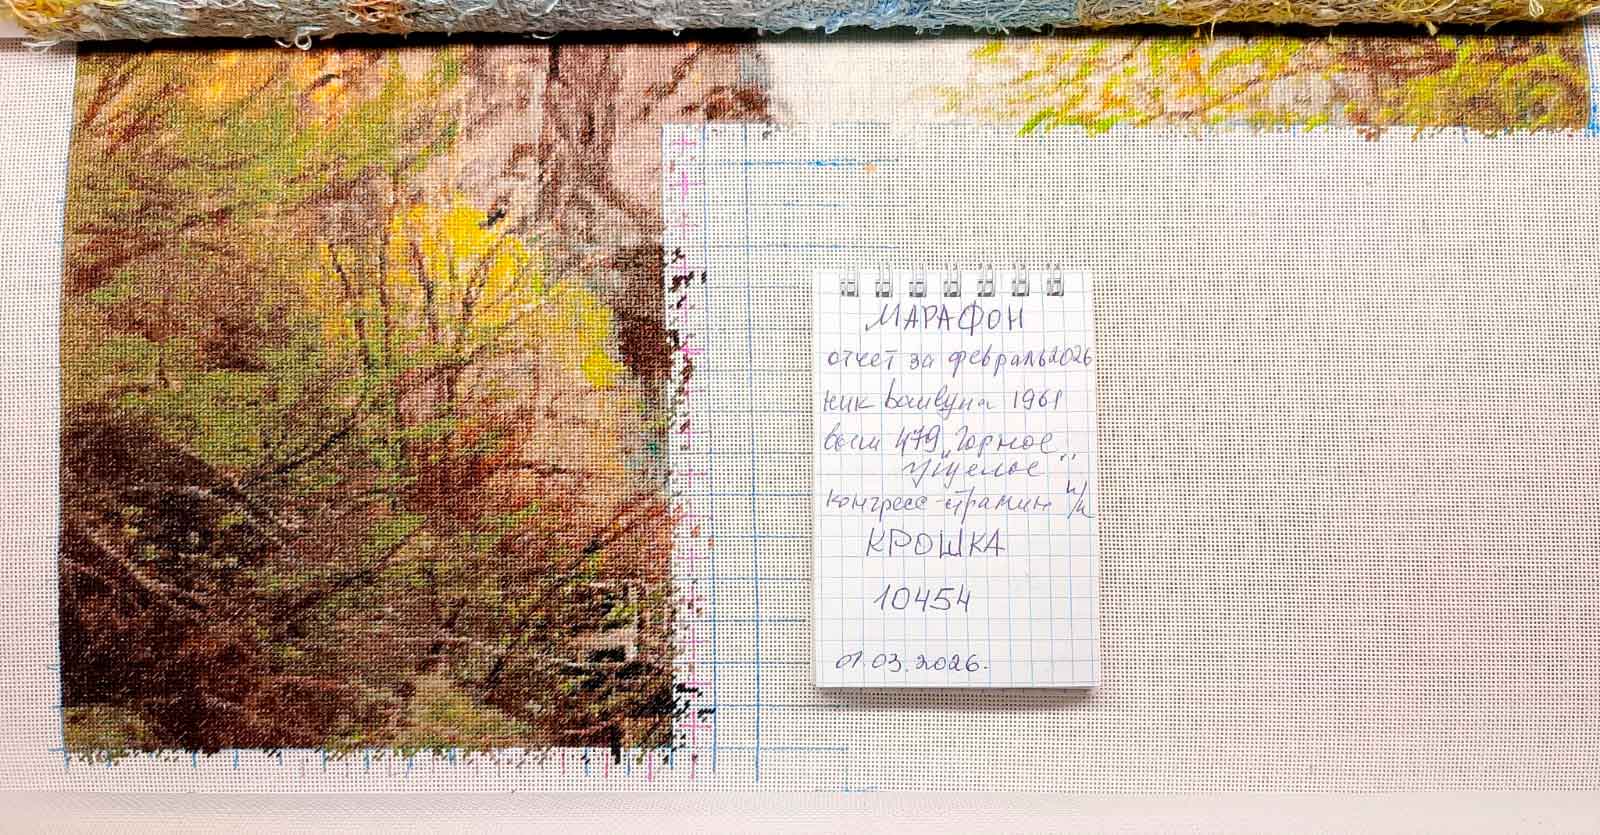 МАРАФОН
отчет за февраль2026
ник Ваивуна 1961
выш 479 „Горное
ущелье"
конгресс-страмин н/к
КРОШКА
10454
01.03.2026.